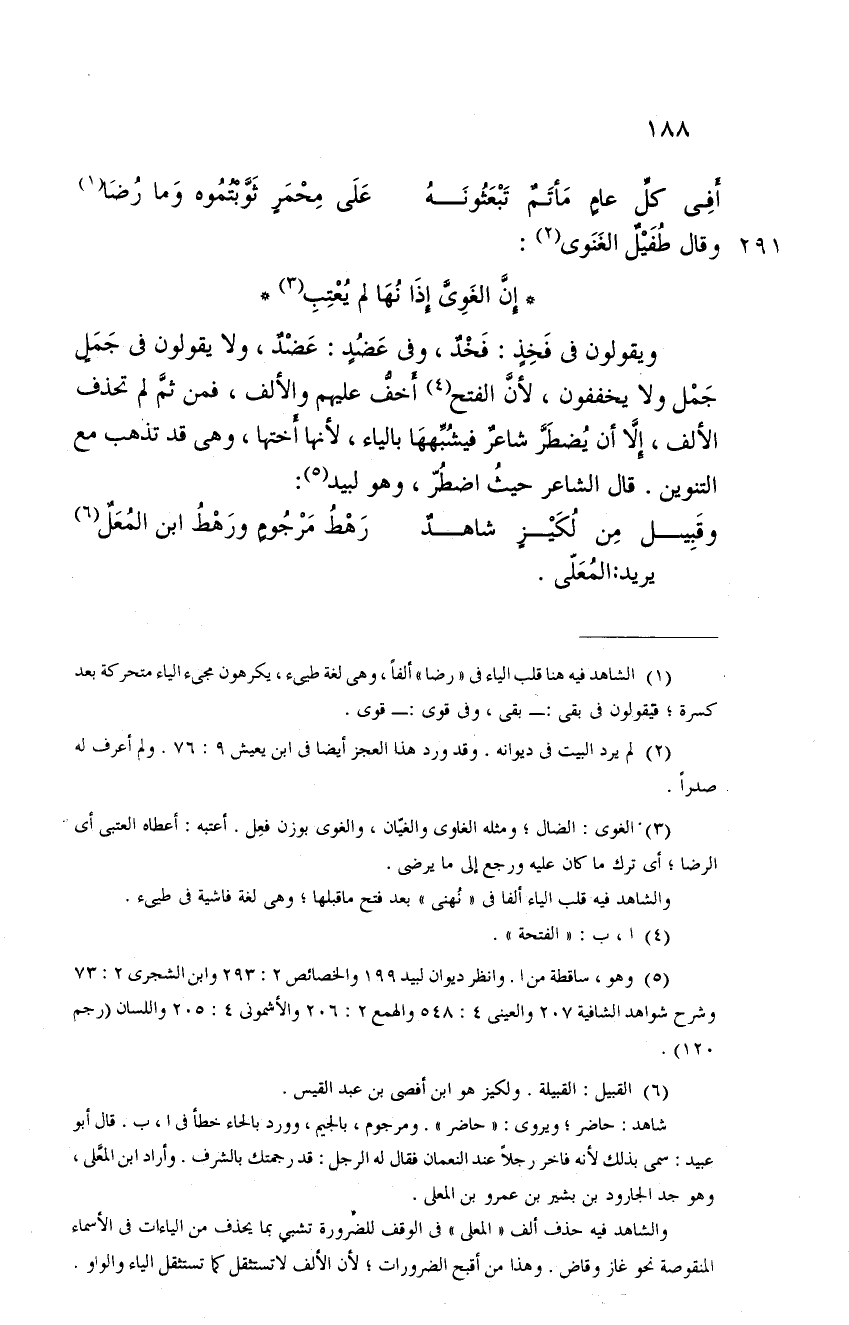 ١٨٨
أَفِى كلِّ عامٍ مَأتَمٌ تَبْعَثُونَـــهُ عَلَى مِحْمَرٍ ثَوَّبْتُمُوه وَما رُضَا(١)
٢٩١ وقال طُفَيْلٌ الغَنَوى(٢) :
* إنَّ الغَوِىَّ إذَا نُهَا لم يُعْتِبِ(٣) *
ويقولون فى فَخِذٍ : فَخْذٌ ، وفى عَضُدٍ : عَضْدٌ ، ولا يقولون فى جَمَلٍ
جَمْل ولا يخففون ، لأنَّ الفتح(٤) أَخفُّ عليهم والألف ، فمن ثمَّ لم تحذف
الألف ، إلَّا أن يُضطَرَّ شاعرٌ فيشُبِّهَهَا بالياء ، لأنها أُختها ، وهى قد تذهب مع
التنوين . قال الشاعر حيثُ اضطُرّ ، وهو لبيد(٥):
وقَبِيـــل مِن لُكَيْـــزٍ شاهـــدٌ رَهْطُ مَرْجُومٍ ورَهْطُ ابن المُعَلّ(٦)
يريد:المُعَلّى .
(١) الشاهد فيه هنا قلب الياء فى « رضا » ألفاً ، وهى لغة طيىء ، يكرهون مجىء الياء متحركة بعد
كسرة ؛ فيقولون فى بقى :ـــ بقى ، وفى قوى :ـــ قوى .
(٢) لم يرد البيت فى ديوانه . وقد ورد هذا العجز أيضا فى ابن يعيش ٩ : ٧٦ . ولم أعرف له
صدراً .
(٣) الغوى : الضال ؛ ومثله الغاوى والغيّان ، والغوى بوزن فعِل . أعتبه : أعطاه العتبى أى
الرضا ؛ أى ترك ما كان عليه ورجع إلى ما يرضى .
والشاهد فيه قلب الياء ألفا فى « نُهنى » بعد فتح ماقبلها ؛ وهى لغة فاشية فى طيىء .
(٤) ا ، ب : « الفتحة » .
(٥) وهو ، ساقطة من ا . وانظر ديوان لبيد ١٩٩ والخصائص ٢ : ٢٩٣ وابن الشجرى ٢ : ٧٣
وشرح شواهد الشافية ٢٠٧ والعينى ٤ : ٥٤٨ والهمع ٢ : ٢٠٦ والأشمونى ٤ : ٢٠٥ واللسان (رجم
١٢٠) .
(٦) القبيل : القبيلة . ولكيز هو ابن أفصى بن عبد القيس .
شاهد : حاضر ؛ ويروى : « حاضر » . ومرجوم ، بالجيم ، وورد بالحاء خطأ فى ا ، ب . قال أبو
عبيد : سمى بذلك لأنه فاخر رجلاً عند النعمان فقال له الرجل : قد رجمتك بالشرف . وأراد ابن المعَّلى ،
وهو جد الجارود بن بشير بن عمرو بن المعلى .
والشاهد فيه حذف ألف « المعلى » فى الوقف للضرورة تشبي بما يحذف من الياءات فى الأسماء
المنقوصة نحو غاز وقاض . وهذا من أقبح الضرورات ؛ لأن الألف لاتستثقل كما تستثقل الياء والواو .